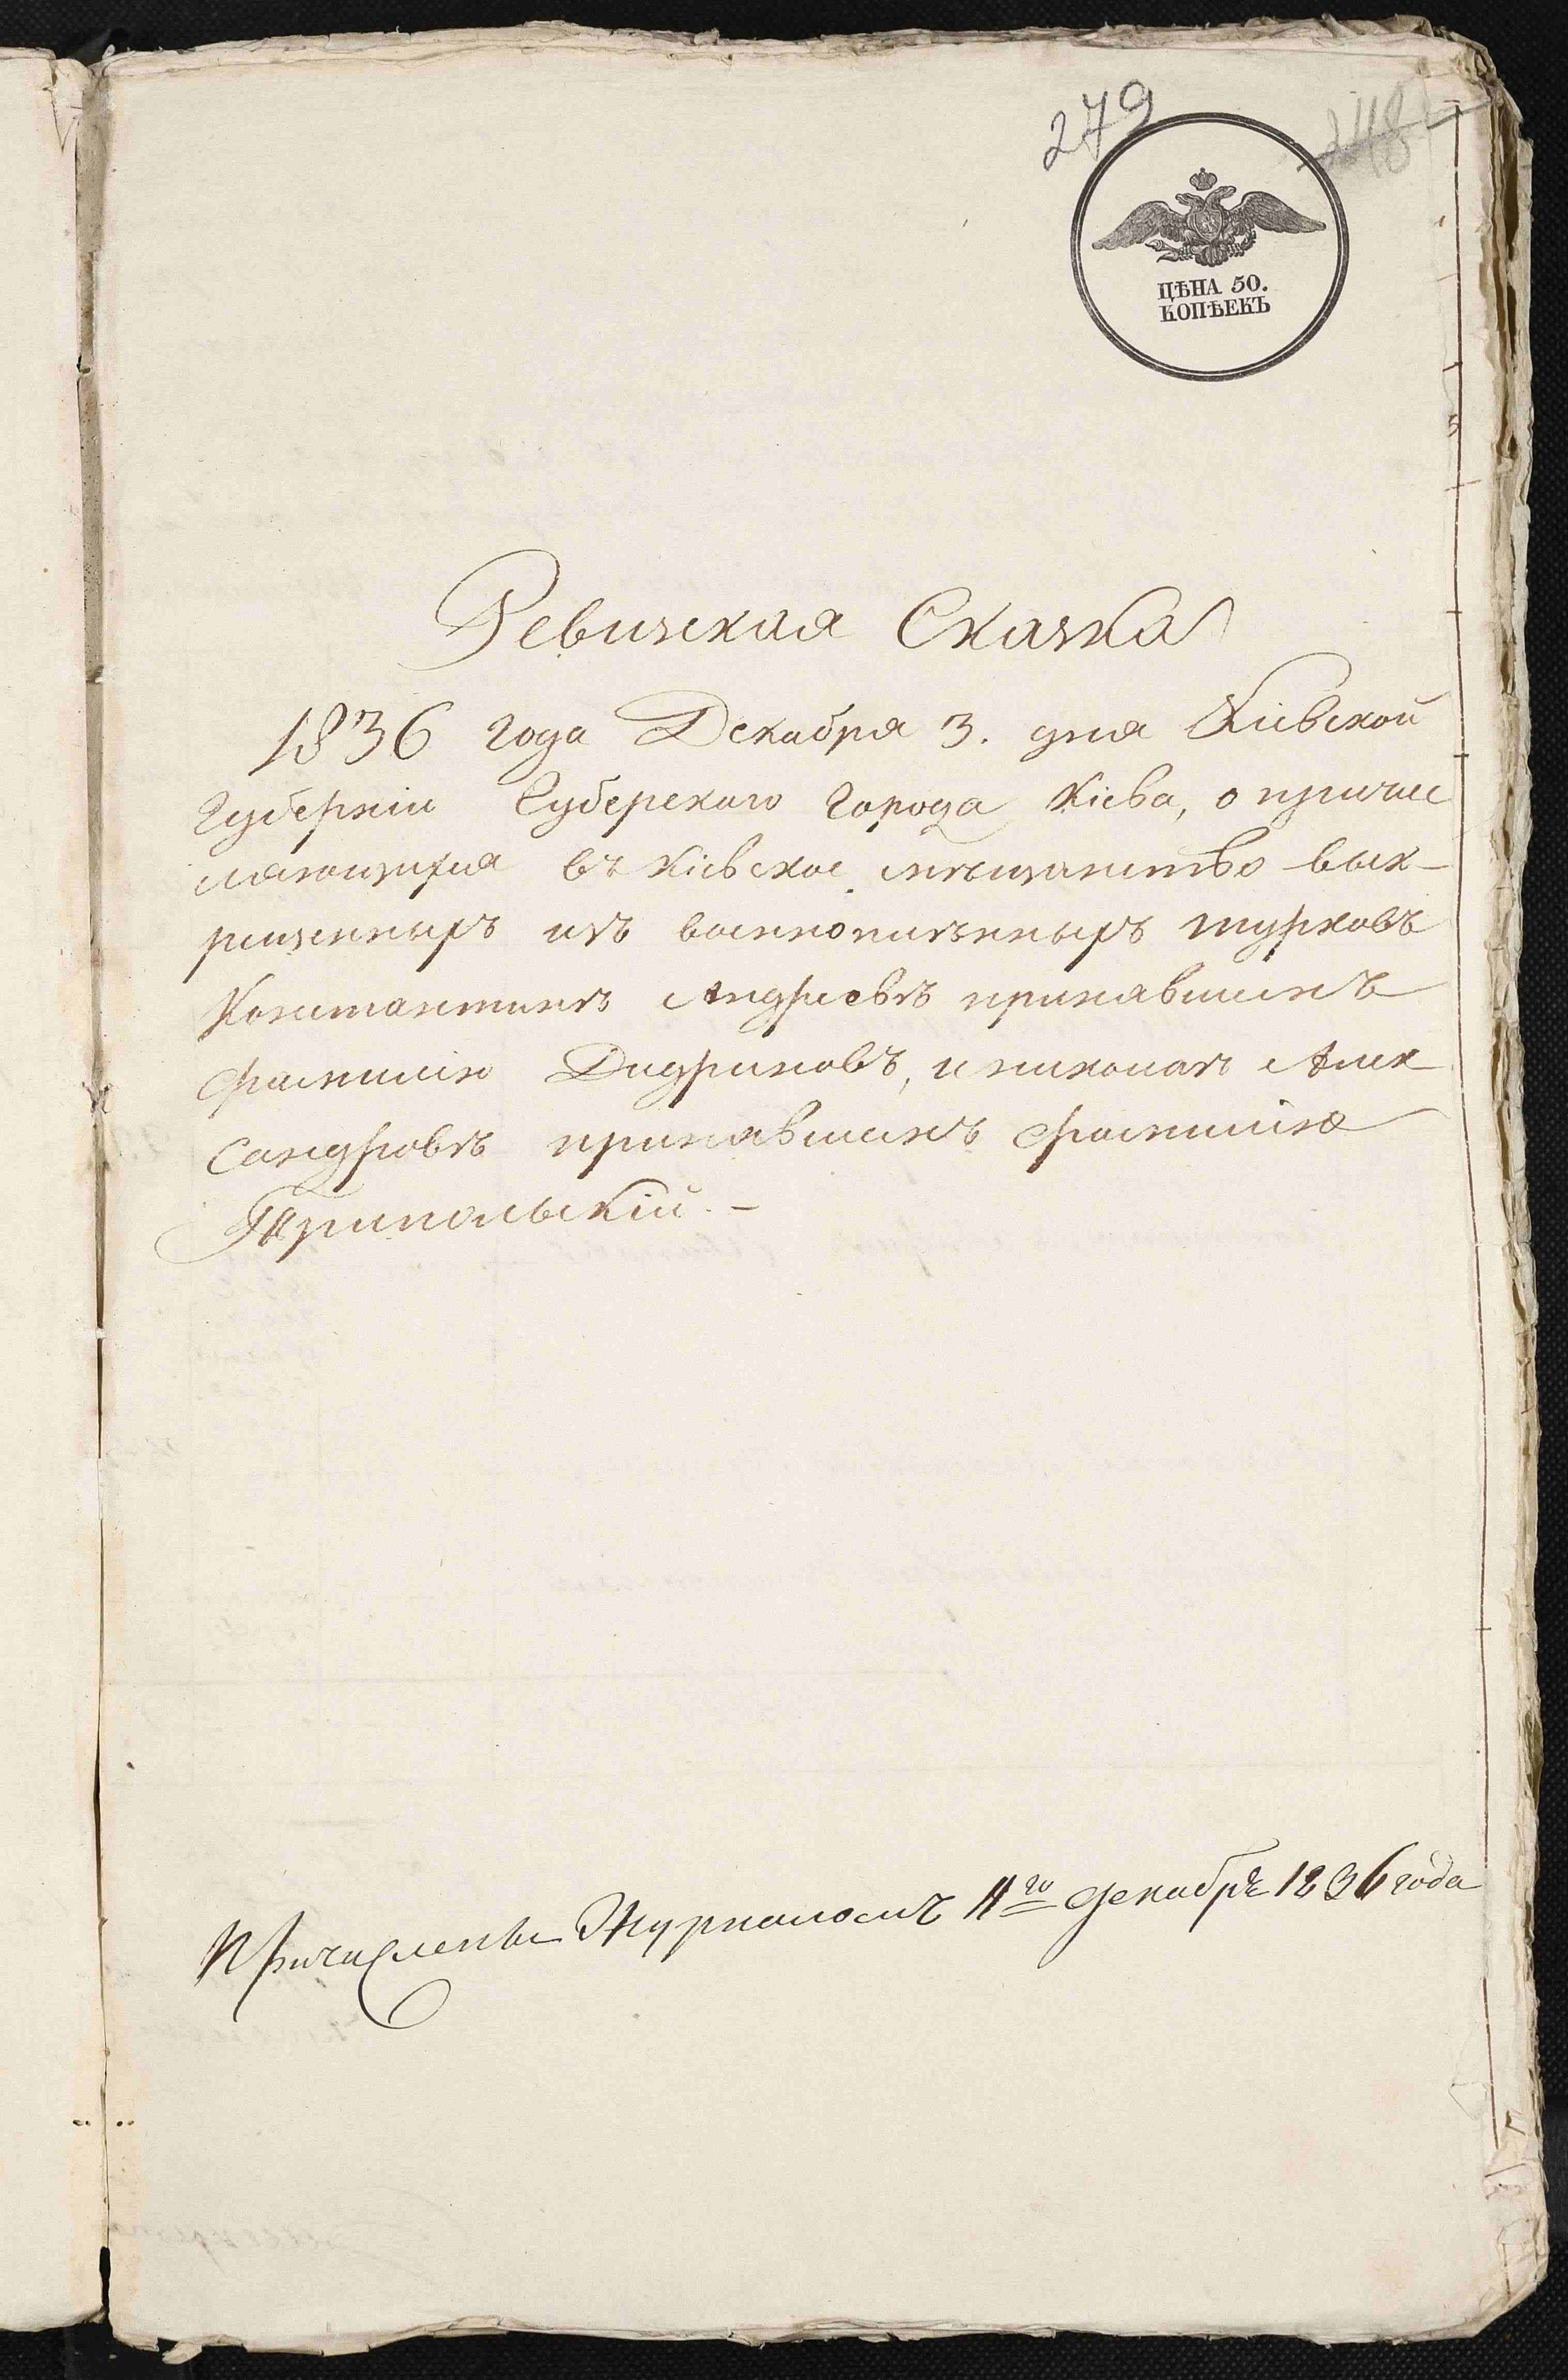 279
248
ЦѢНА 50.
КОПѢЕКЪ
Ревизская Сказка
1836 года Декабря 3. дня Кіевской
Губерніи Губерскаго города Кіева, о причис
ляющихся въ Кіевское мѣщанство вык-
рещенныхъ изъ военнопленныхъ турковъ
Константинъ Андреевъ принявшимъ
фамилію Дидриновъ, и николай Алек
сандровъ принявшимъ фамилію
Трипольскій. –
Причислены Журналомъ 4го декабря 1836 года